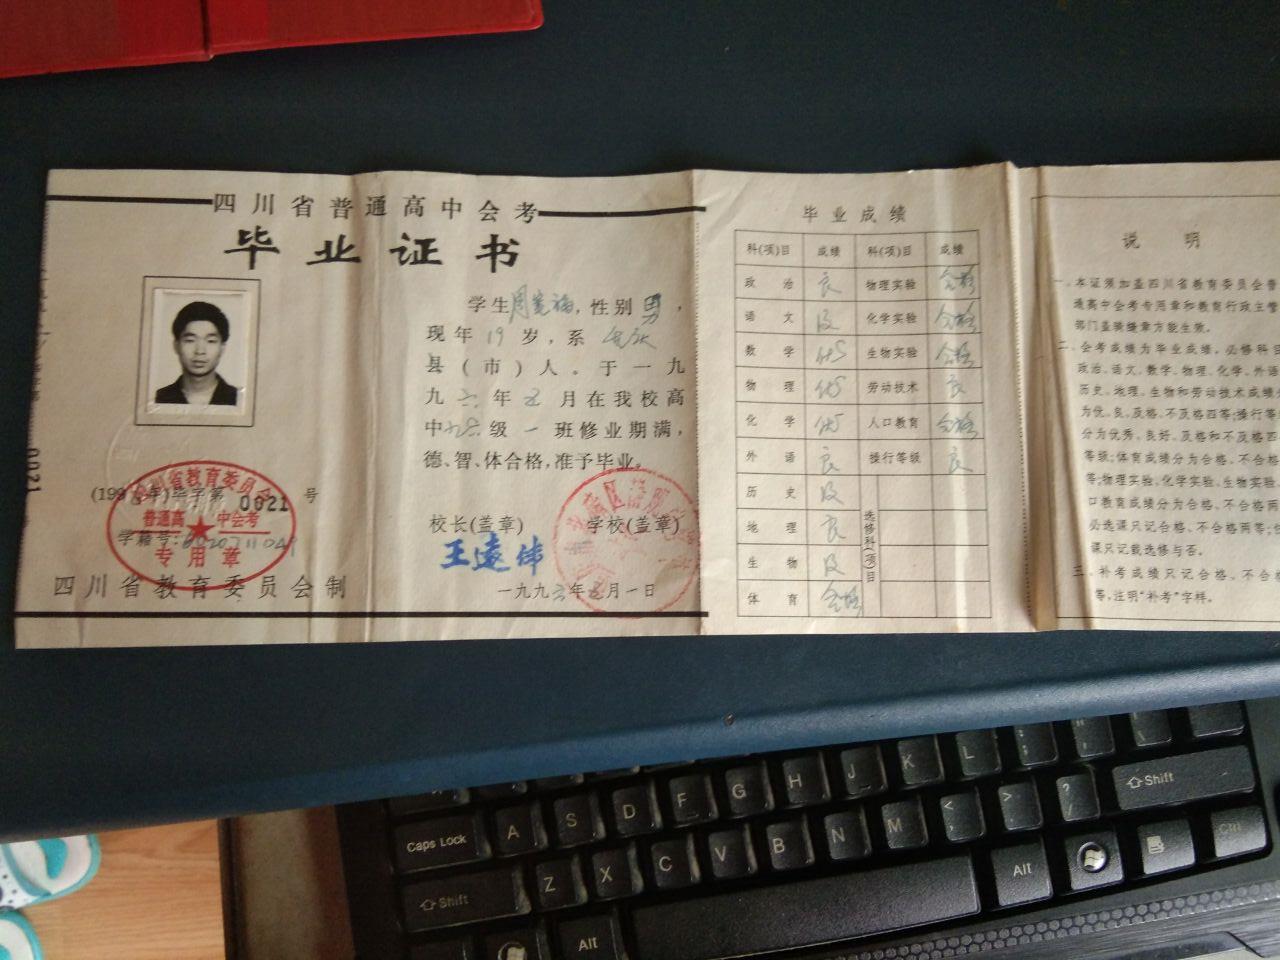 四川省普通高中会考
毕业证书
学生周宪福，性别男，
现年19岁，系
县（市）人。于一九
九六年五月在我校高
中九六级一班修业期满，
德、智、体合格，准予毕业。
校长（盖章） 学校（盖章）
王远伟
一九九六年五月一日
四川省教育委员会
普通高中会考
专用章
毕字第0021号
学籍号：
四川省教育委员会制
0021
毕业成绩
科（项）目 成绩 科（项）目 成绩
政治 良 物理实验 合格
语文 及 化学实验 合格
数学 优 生物实验 合格
物理 优 劳动技术 良
化学 优 人口教育 合格
外语 良 操行等级 良
历史 及
地理 良
生物 及
体育 合格
选修科（项）目
说明
一、本证须加盖四川省教育委员会普
通高中会考专用章和教育行政主管
部门盖骑缝章方能生效。
二、会考成绩为毕业成绩。必修科目
政治、语文、数学、物理、化学、外语
历史、地理、生物和劳动技术成绩分
为优、良、及格、不及格四等；操行等
分为优秀、良好、及格和不及格四
等级；体育成绩分为合格、不合格
等；物理实验、化学实验、生物实验、
口教育成绩分为合格、不合格两
必选课只记合格、不合格两等；
课只记载选修与否。
三、补考成绩只记合格、不合格
等，注明“补考”字样。
K L ; "
Caps Lock A S D F G H J
Shift Z X C V B N M < > ? / Shift
Alt Alt Ctrl